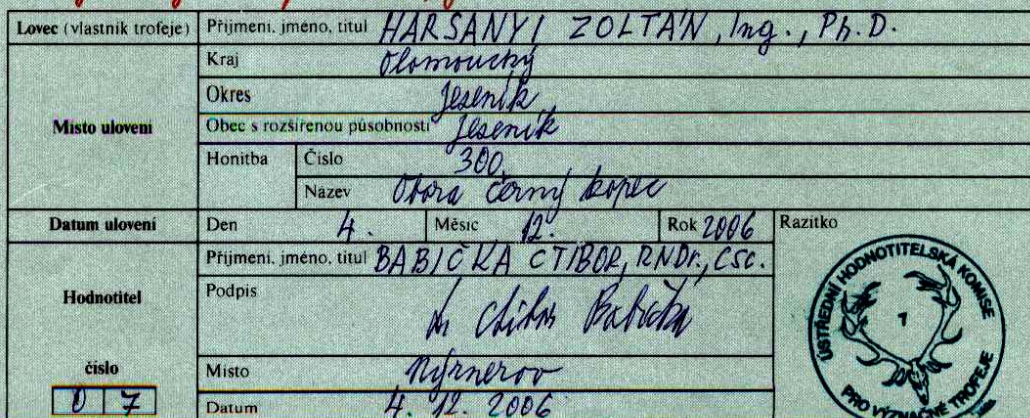 Lovec (vlastník trofeje) Přijmeni, jméno, titul HARSANYI ZOLTÁN, Ing., Ph.D.
Místo ulovení
Kraj Olomoucký
Okres Jeseník
Obec s rozšířenou působností Jeseník
Honitba Číslo 300
Název Obora černý kopec
Datum ulovení Den 4. Měsíc 12. Rok 2006 Razítko
Hodnotitel
Přijmeni, jméno, titul BABIČKA CTIBOR, RNDr., CSc.
Podpis Ctibor Babička
číslo
07
Místo Rýmerov
Datum 4. 12. 2006
ÚSTŘEDNÍ HODNOTITELSKÁ KOMISE
1
PRO VÝZNAČNÉ TROFEJE